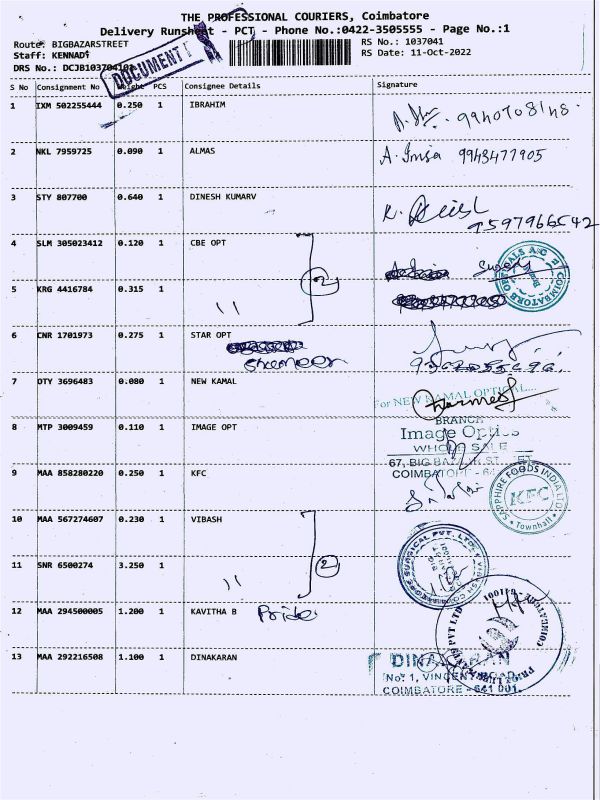 THE PROFESSIONAL COURIERS, Coimbatore
Delivery Runsheet - PCT - Phone No.:0422-3505555 - Page No.:1
Route: BIGBAZARSTREET RS No.: 1037041
Staff: KENNADI RS Date: 11-Oct-2022
DRS No.: DCJB103704101
DOCUMENT
S No Consignment No Weight PCS Consignee Details Signature
1 IXM 502255444 0.250 1 IBRAHIM
2 NKL 7959725 0.090 1 ALMAS A. Insa 9943477905
3 STY 807700 0.640 1 DINESH KUMARV K. 9597966542
4 SLM 305023412 0.120 1 CBE OPT 2
COIMBATORE OPTICALS A/C
5 KRG 4416784 0.315 1 11
6 CNR 1701973 0.275 1 STAR OPT
Shameer
7 OTY 3696483 0.080 1 NEW KAMAL
For NEW KAMAL OPTICAL...
8 MTP 3009459 0.110 1 IMAGE OPT
BRANCH
Image Optics
WHOLE SALE
67, BIG BAZAAR ST
COIMBATORE - 64
9 MAA 858280220 0.250 1 KFC
SAPPHIRE FOODS INDIA LTD.
KFC
Townhall
10 MAA 567274607 0.230 1 VIBASH 2
SURGICAL PVT. LTD.
11 SNR 6500274 3.250 1 11
12 MAA 294500005 1.200 1 KAVITHA B Pride
PVT LTD
COIMBATORE
13 MAA 292216508 1.100 1 DINAKARAN
DINAKARAN
No: 1, VINCENT ROAD,
COIMBATORE - 641 001.